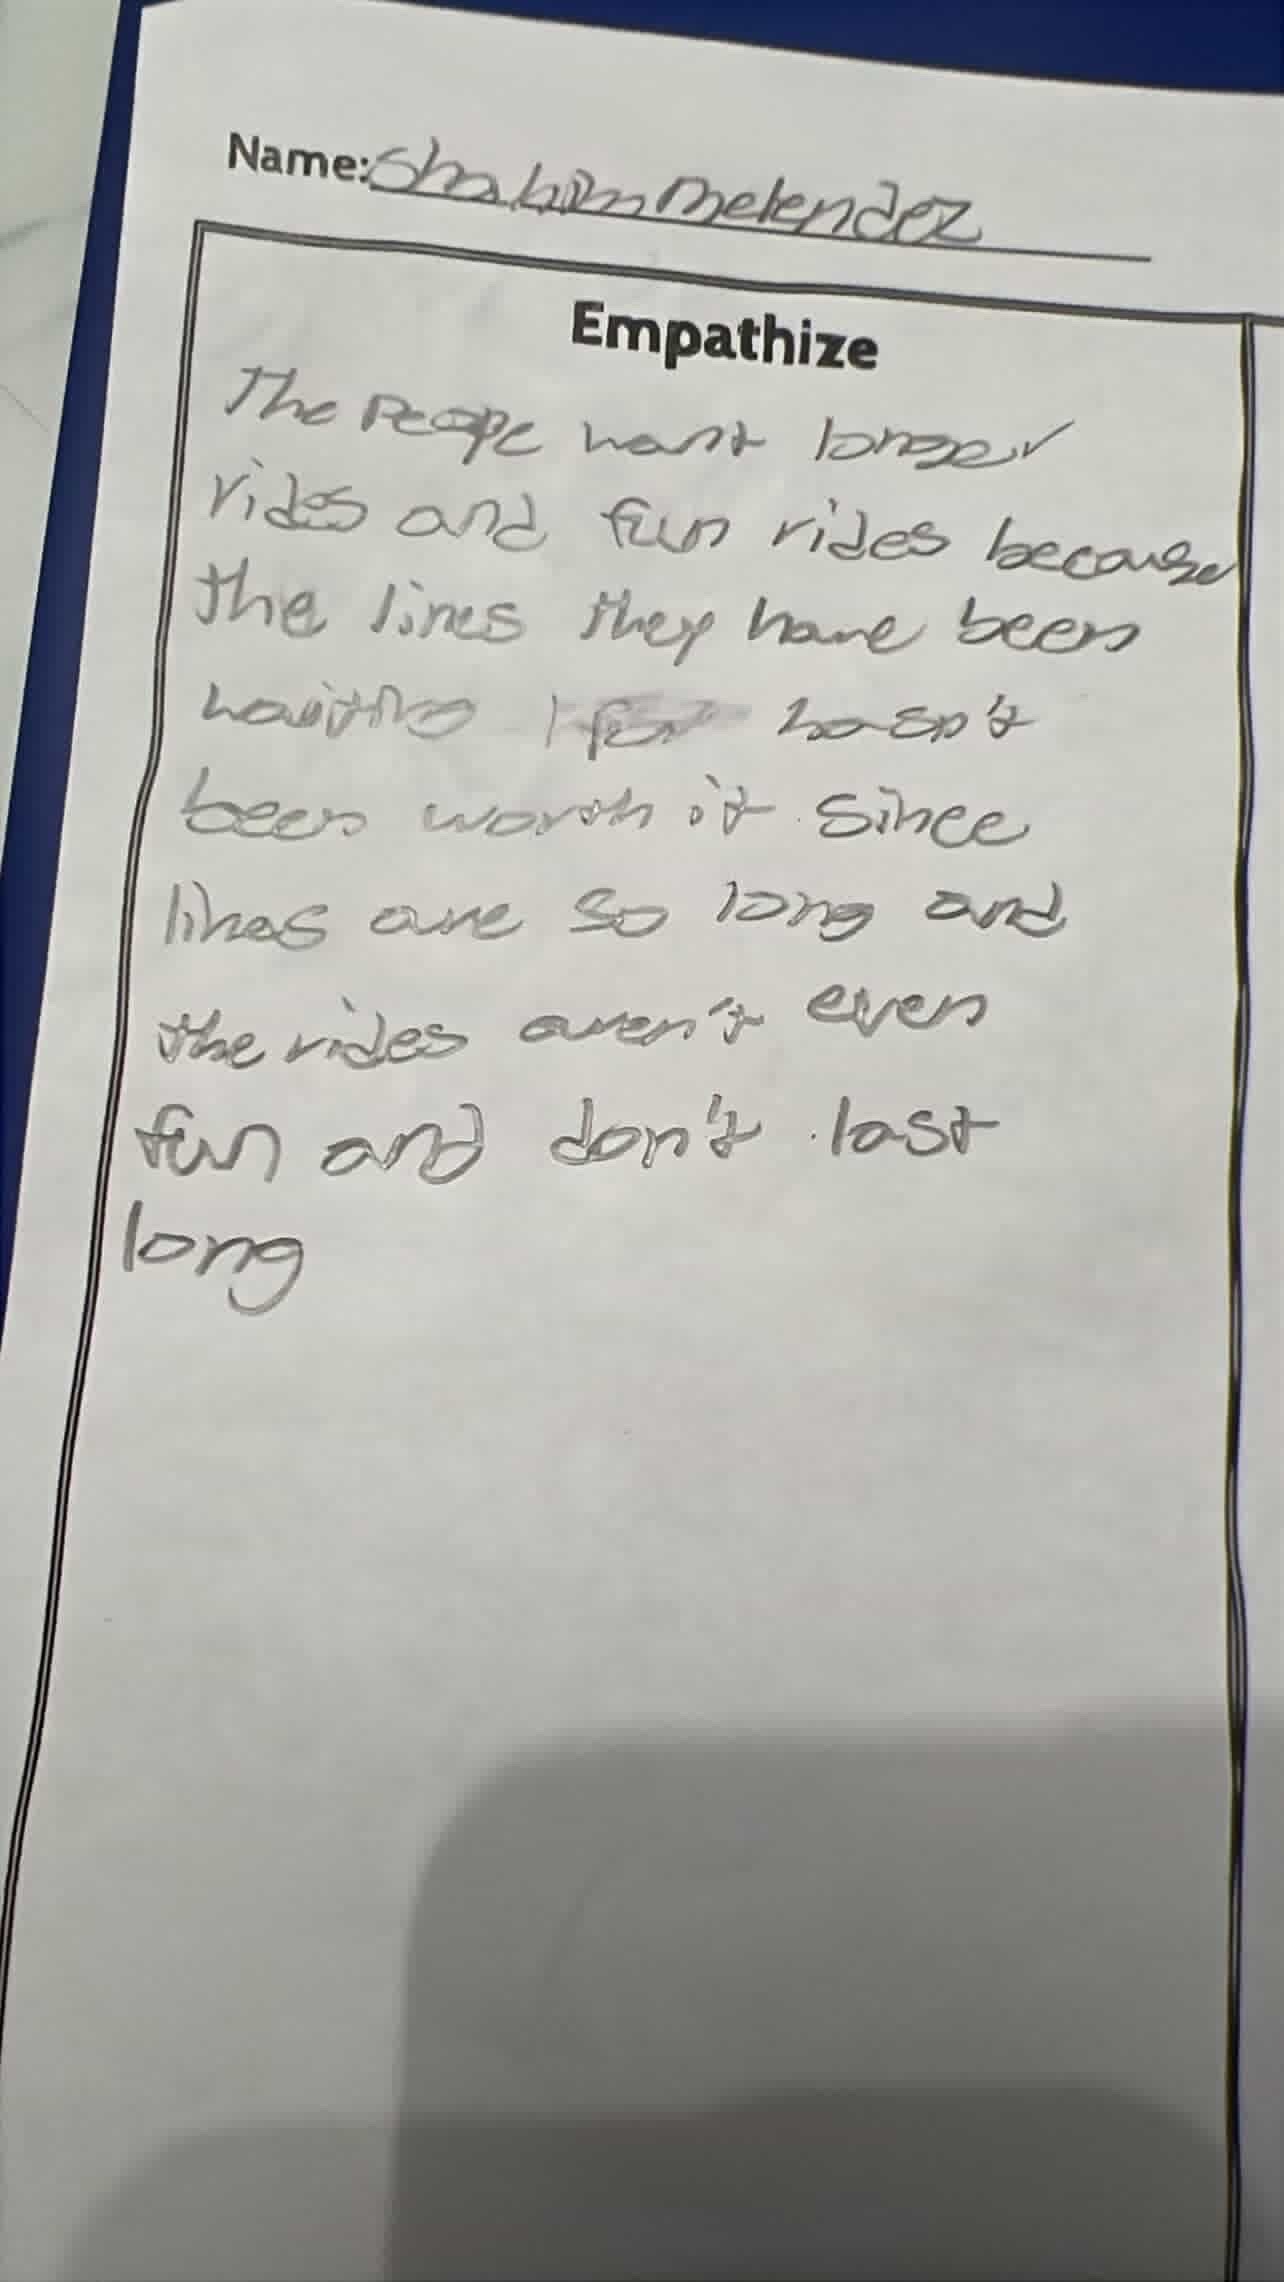 Name: Shahim Melendez
Empathize
The Peope want longer
rides and fun rides because
the lines they have been
waiting for hasn't
been worth it since
lines are so long and
the rides aren't even
fun and don't last
long